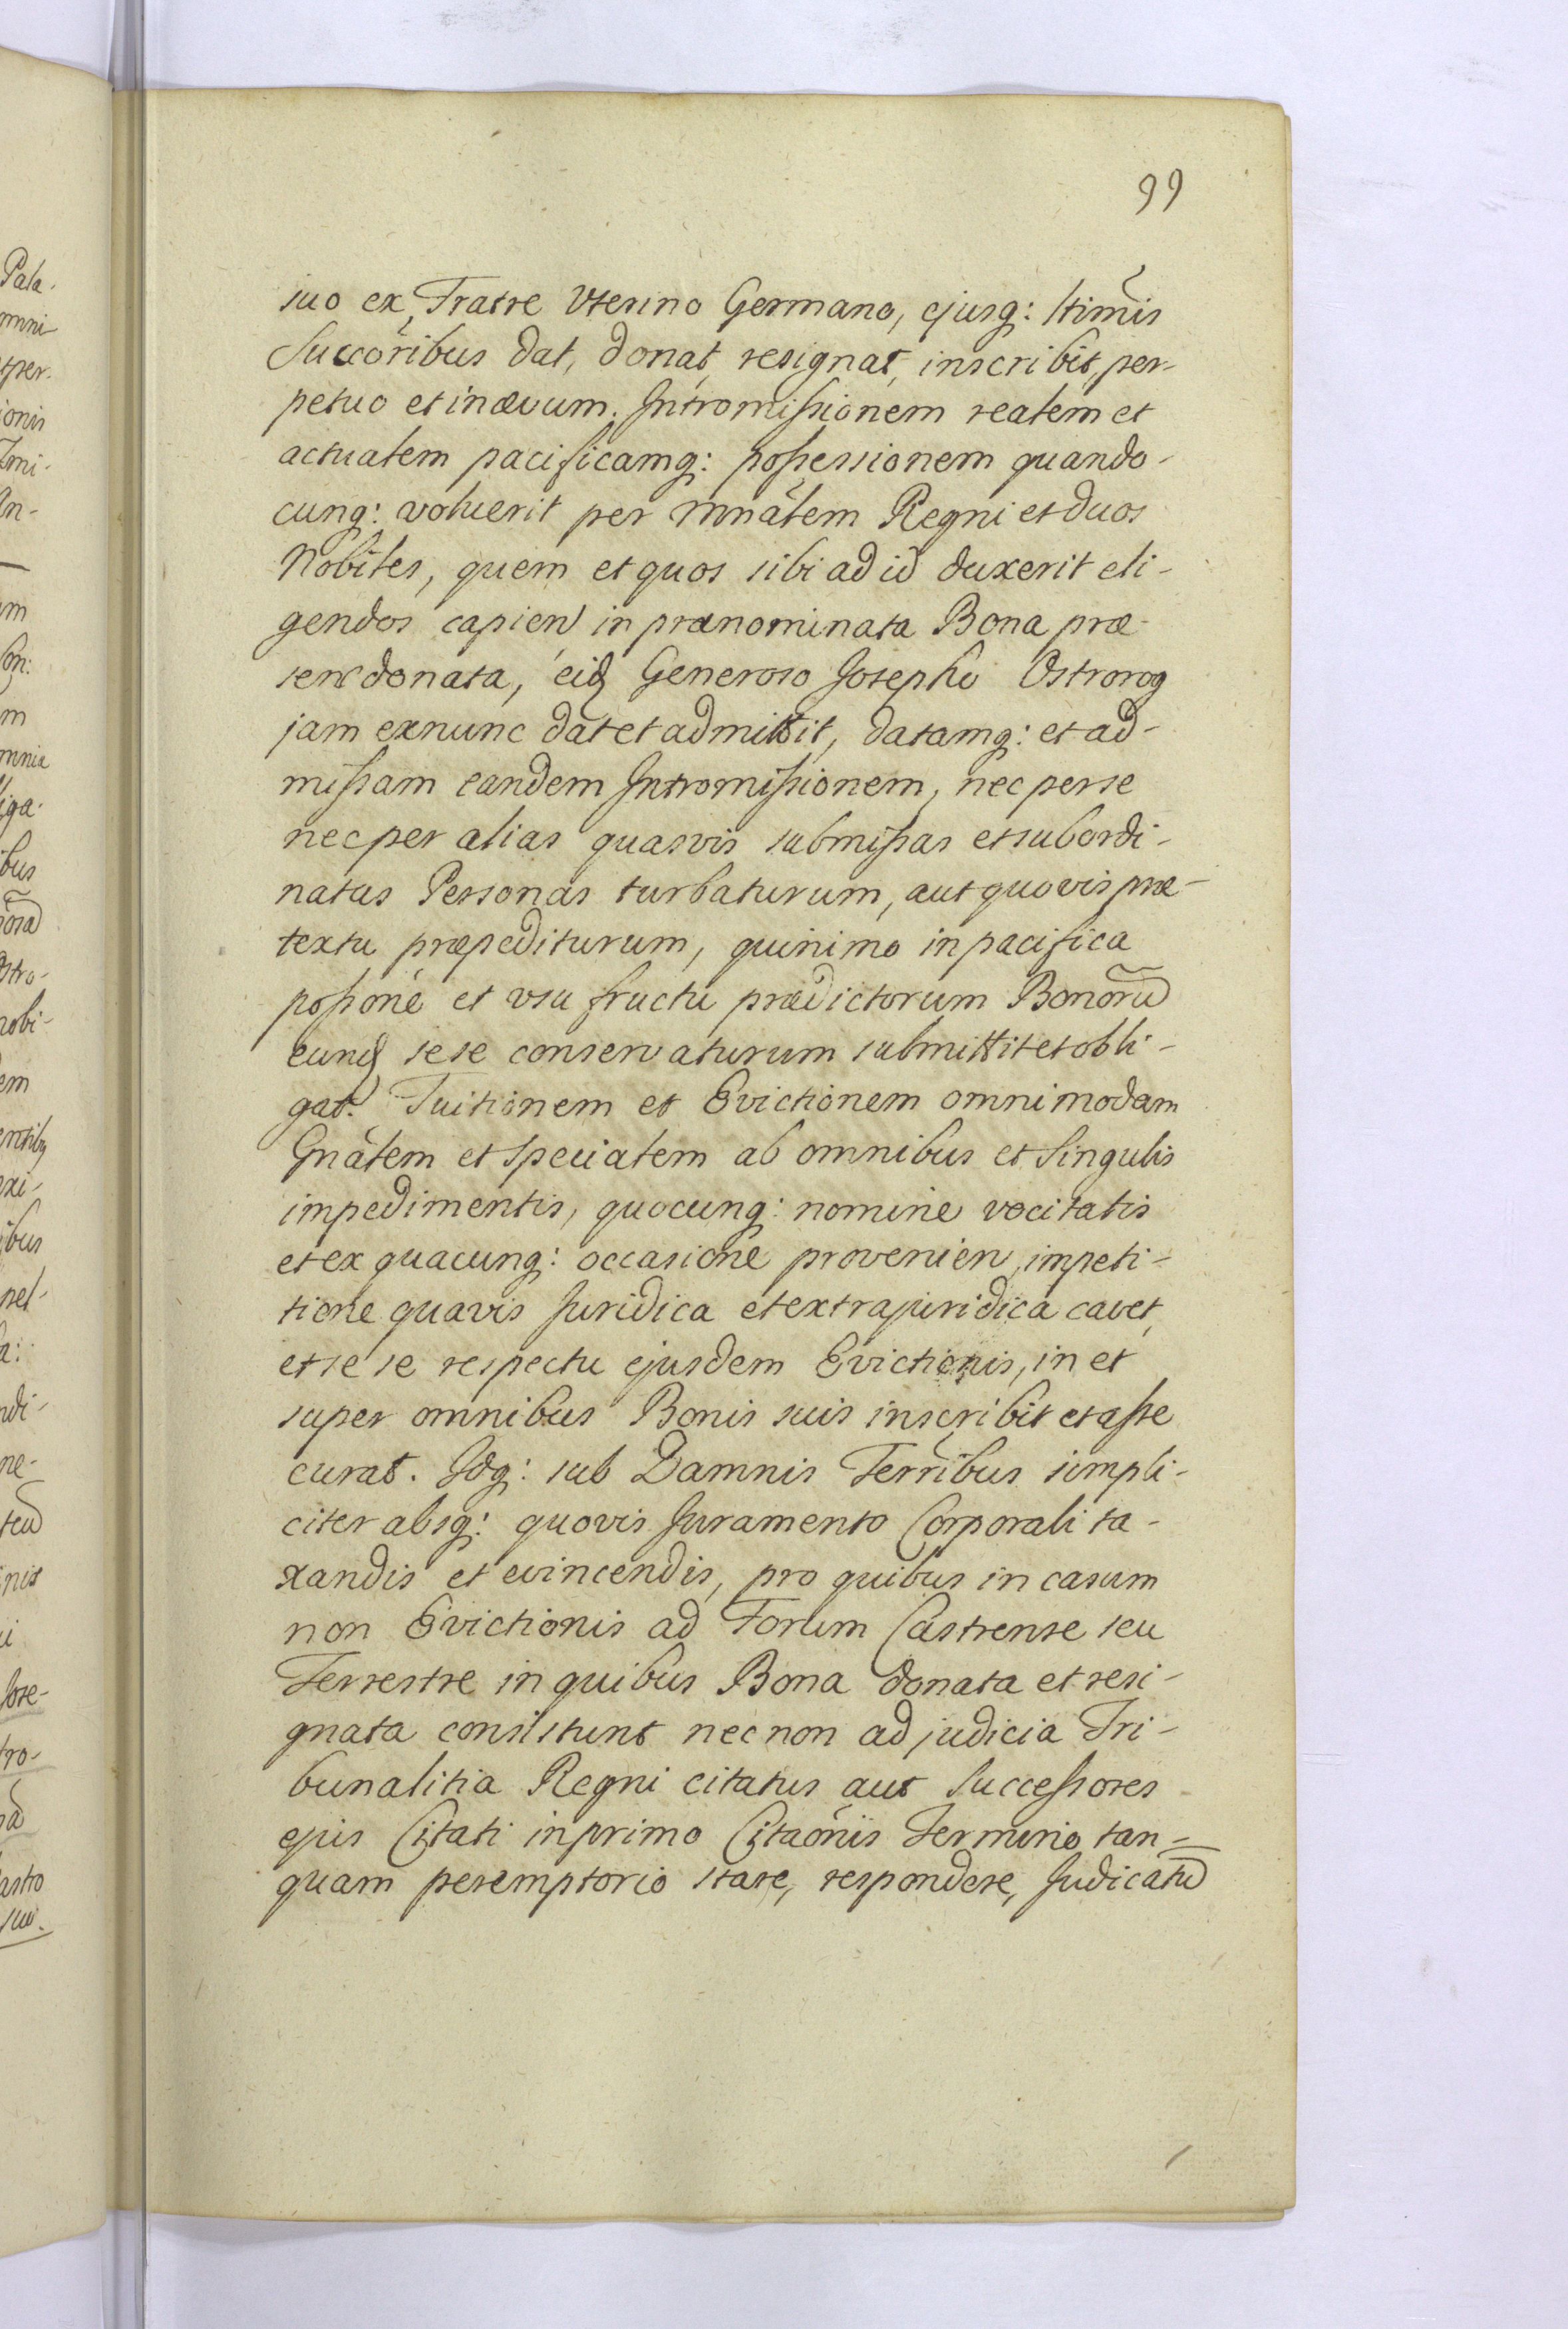 99
suo ex Fratre Vterino Germano, ejusq: ltimis
Succoribus dat, donat, resignat, inscribit, per-
petuo et in ævum. Intromissionem realem et
actualem pacificamq: possessionem quando-
cunq: voluerit per Mnalem Regni et duos
Nobiles, quem et quos sibi ad id duxerit eli-
gendos capien in prænominata Bona præ-
sen donata, eid Generoso Josepho Ostrorog
jam exnunc dat et admittit, datamq: et ad-
missam eandem Intromissionem, nec per se
nec per alias quasvis submissas et subordi-
natas Personas turbaturum, aut quovis præ-
textu præpediturum, quinimo in pacifica
possone et vsu fructu prædictorum Bonoru
eund sese conservaturum submittit et obli-
gat. Tuitionem et Evictionem omnimodam
Gnalem et specialem ab omnibus et singulis
impedimentis, quocunq: nomine vocitatis
et ex quacunq: occasione provenien, impeti-
tione quavis Juridica et extrajuridica cavet,
et se se respectu ejusdem Evictionis, in et
super omnibus Bonis suis inscribit et asse
curat. Idq: sub Damnis Terribus simpli-
citer absq: quovis Juramento Corporali ta-
xandis et evincendis, pro quibus in casum
non Evictionis ad Forum Castrense seu
Terrestre in quibus Bona donata et resi-
gnata consistunt nec non ad judicia Tri-
bunalitia Regni citatus aut Successores
ejus Citati in primo Citaonis Termino tan-
quam peremptorio stare, respondere, Judicatu